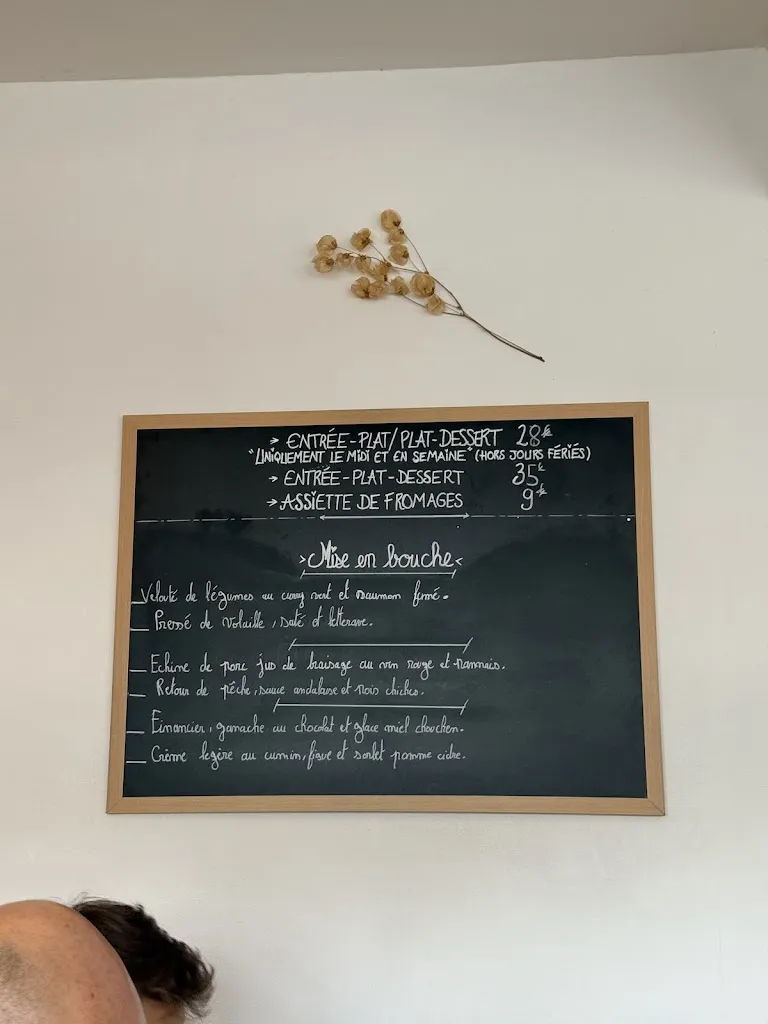 → ENTRÉE-PLAT/PLAT-DESSERT 28€
"UNIQUEMENT LE MIDI ET EN SEMAINE" (HORS JOURS FÉRIÉS)
→ ENTRÉE-PLAT-DESSERT 35€
→ ASSIETTE DE FROMAGES 9€
>Mise en bouche<
_Velouté de légumes au curry vert et saumon fumé.
_ Pressé de volaille, saté et betterave.
_ Echine de porc jus de braisage au vin rouge et panais.
_ Retour de pêche, sauce andalouse et pois chiches.
_ Financier, ganache au chocolat et glace miel chouchen.
_ Crème legère au cumin, figue et sorbet pomme cidre.